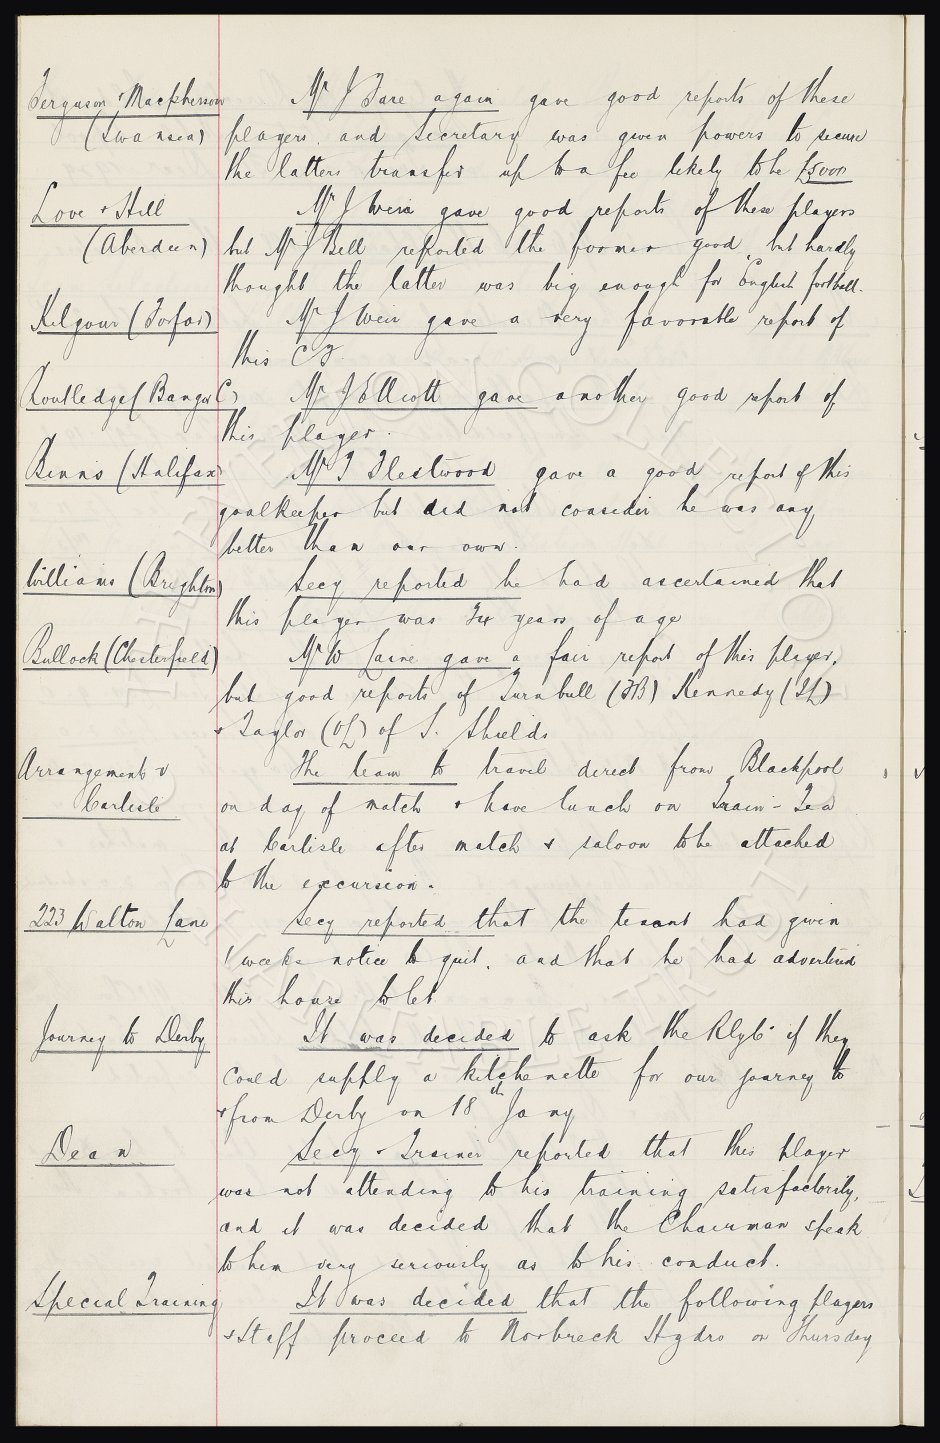 Ferguson & Macpherson
(Swansea)
Mr J Fare again gave good reports of these
players, and Secretary was given powers to secure
the latters transfer up to a fee likely to be £5000
Love & Hill
(Aberdeen)
Mr J Weir gave good reports of these players
but Mr J Bell reported the former good, but hardly
thought the latter was big enough for English football.
Kilgour (Forfar)
Mr J Weir gave a very favorable report of
this CF.
Routledge (Bangor C)
Mr J Elliott gave another good report of
this player.
Binns (Halifax)
Mr T Fleetwood gave a good report of this
goalkeeper but did not consider he was any
better than our own.
Williams (Brighton)
Secy reported he had ascertained that
this player was 34 years of age
Bullock (Chesterfield)
Mr W Caine gave a fair report of this player,
but good reports of Turnbull (FB) Kennedy (IL)
& Taylor (OL) of S. Shields
Arrangements v
Carlisle
The team to travel direct from Blackpool
on day of match & have lunch on Train - Tea
at Carlisle after match & saloon to be attached
to the excursion.
223 Walton Lane
Secy reported that the tenant had given
1 weeks notice to quit, and that he had advertised
this house to let
Journey to Derby
It was decided to ask the Rly Co if they
could supply a kitchenette for our journey to
& from Derby on 18th Jany
Dean
Secy & Trainer reported that this player
was not attending to his training satisfactorily,
and it was decided that the Chairman speak
to him very seriously as to his conduct.
Special Training
It was decided that the following players
& Staff proceed to Norbreck Hydro on Thursday